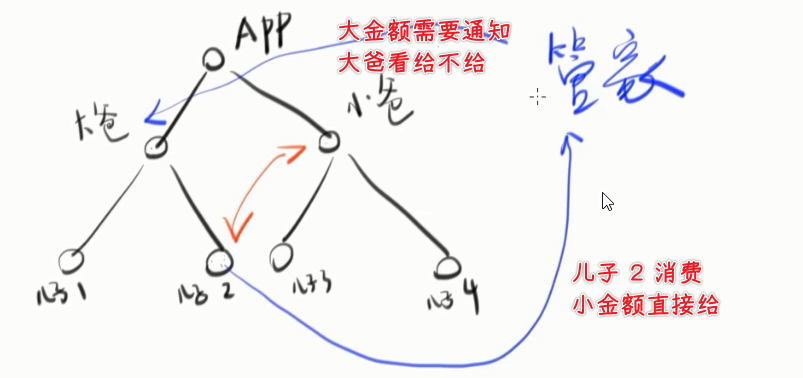 App
大金额需要通知
大爸看给不给
管家
大爸
小爸
儿子1
儿子2
儿子3
儿子4
儿子 2 消费
小金额直接给